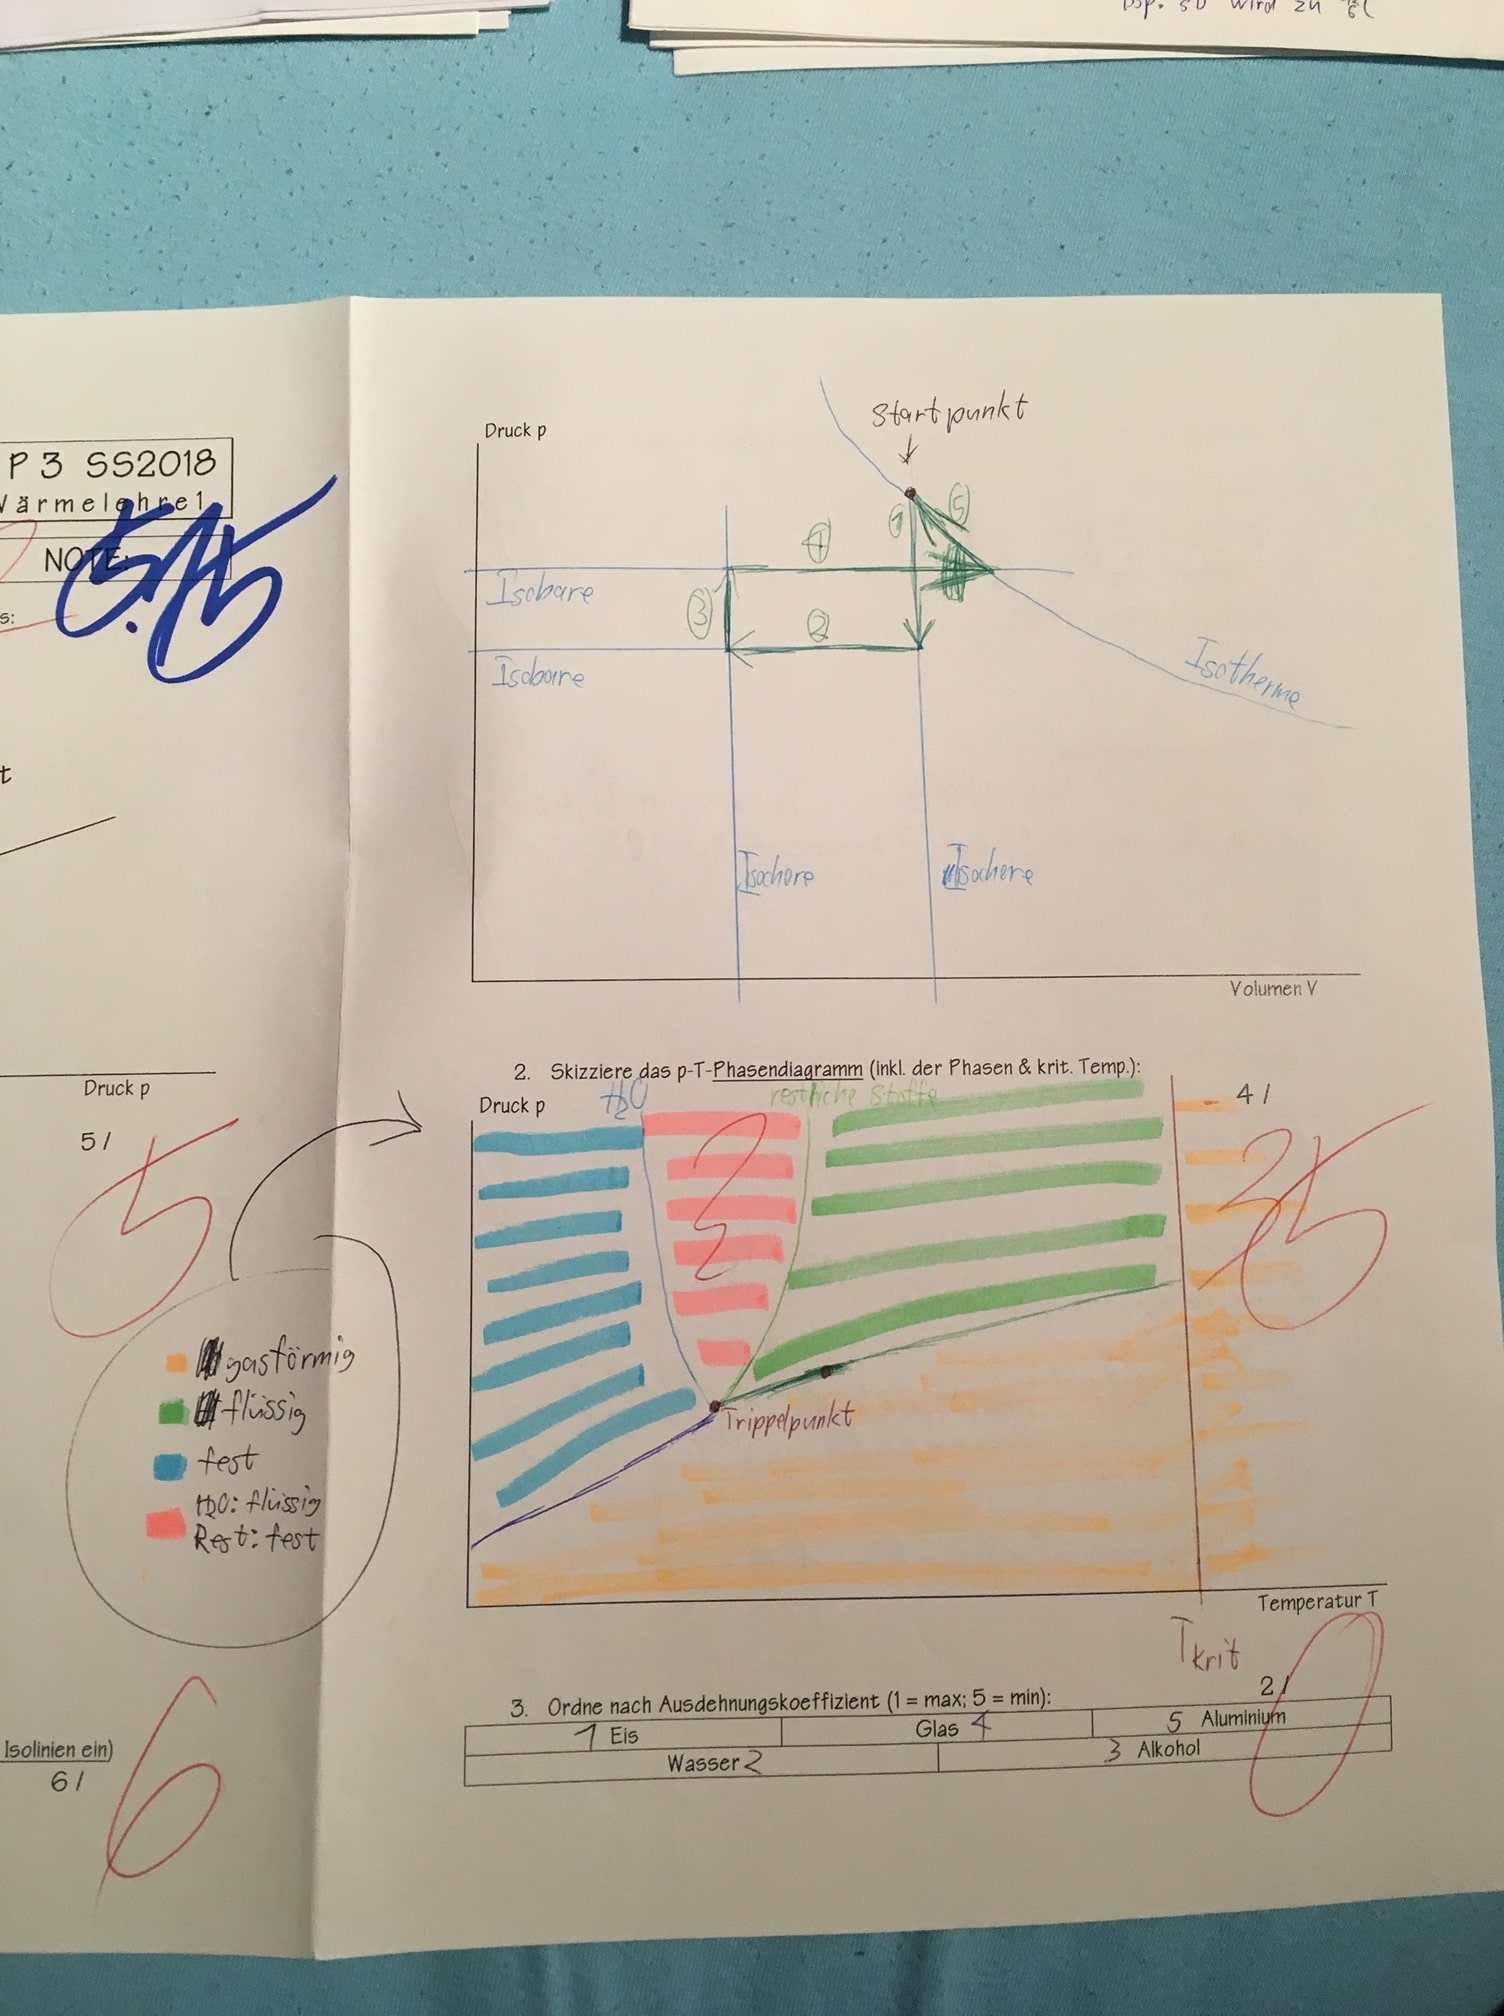 Bsp. 50 wird zu
P 3 SS2018
Wärmelehre1
NOTE:
5.15
s:
t
Druck p
5 /
5
gasförmig
flüssig
fest
H2O: flüssig
Rest: fest
Isolinien ein)
6 /
6
Startpunkt
Druck p
1
5
4
Isobare
3
2
Isobare
Isotherme
Isochore
Isochore
Volumen V
2. Skizziere das p-T-Phasendiagramm (inkl. der Phasen & krit. Temp.):
Druck p
H2O
restliche Stoffe
4 /
Trippelpunkt
Temperatur T
Tkrit
2 /
0
3. Ordne nach Ausdehnungskoeffizient (1 = max; 5 = min):
1 Eis
Glas 4
5 Aluminium
Wasser 2
3 Alkohol